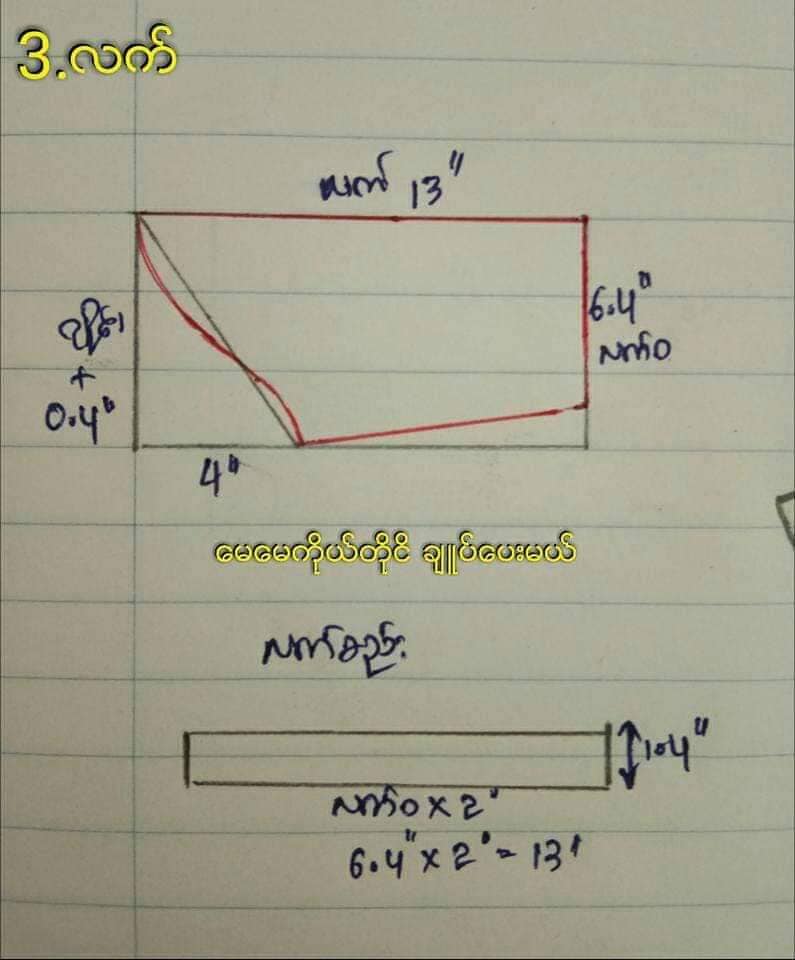 3.လက်
လက် 13"
ချိုင်း
+
0.4"
6.4"
လက်ဝ
4"
မေမေကိုယ်တိုင် ချူပ်ပေးမယ်
လက်စည်း
1.4"
လက်ဝ x 2"
6.4" x 2" = 13"